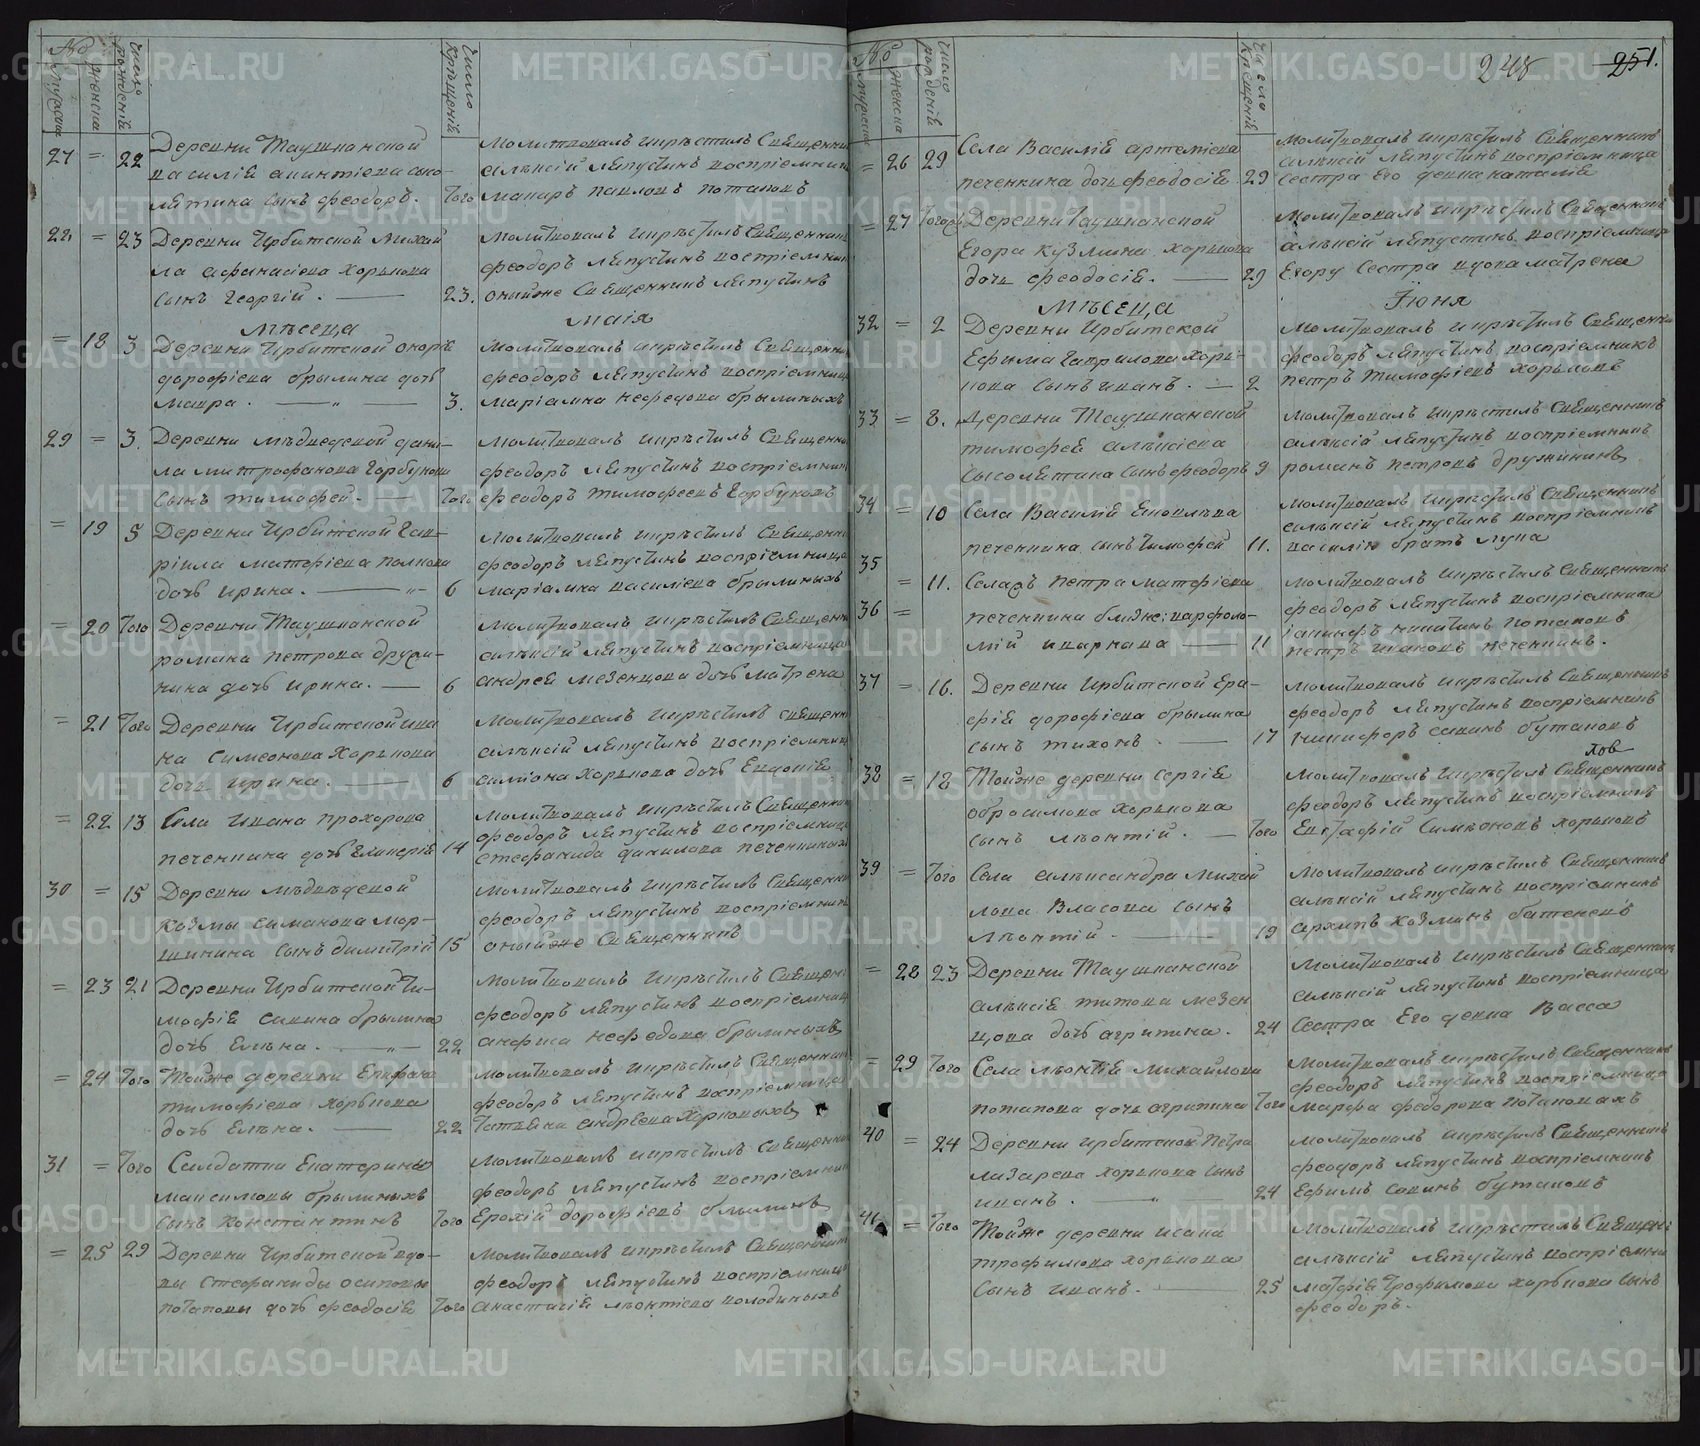 №
мужеска
женска
число рождения
число крещения
27 = 22 Деревни Таушканской
василiя акинтiева сысо-
лятина сынъ феодоръ. Того
молитвовалъ икрестилъ Священник
алексiй ляпустинъ воспрiемник
макаръ павловъ потаповъ
28 = 23 Деревни Ирбитской Михаи
ла афанасiева Хорькова
сынъ Георгiй. — 23.
молитвовалъ икрестилъ Священник
феодоръ ляпустинъ воспрiемник
оныйже Священникъ ляпустинъ
Месеца маiя
= 18 3 Деревни Ирбитской
дорофiева брылина дочь
мавра. — " — 3.
молитвовалъ икрестилъ Священник
феодоръ ляпустинъ воспрiемница
марiамна нефедова брылиныхъ
29 = 3. Деревни медведской дани-
ла митрофанова Горбунова
сынъ тимофей. — Того
молитвовалъ икрестилъ Священник
феодоръ ляпустинъ воспрiемник
феодоръ тимофеевъ Горбуновъ
= 19 5 Деревни Ирбитской Гав-
рiила матфiева
дочь ирина. — " — 6
молитвовалъ икрестилъ Священник
феодоръ ляпустинъ воспрiемница
марiамна василiева брылиныхъ
= 20 Того Деревни Таушканской
романа петрова дружи-
нина дочь ирина. — 6
молитвовалъ икрестилъ Священник
алексiй ляпустинъ воспрiемница
андрея мезенцова дочь матрена
= 21 Того Деревни Ирбитской ива
на Симеонова Хорькова
дочь ирина. — 6
молитвовалъ икрестилъ священник
алексiй ляпустинъ воспрiемница
симiона хорькова дочь Евдокiя
= 22 13 Села Ивана прохорова
печенкина дочь Гликерiя 14
молитвовалъ икрестилъ Священник
феодоръ ляпустинъ воспрiемница
стефанида данилова печенкиныхъ
30 = 15 Деревни медведской
козмы симанова мор-
шинина сынъ димитрiй 15
молитвовалъ икрестилъ Священник
феодоръ ляпустинъ воспрiемник
оныйже Священникъ
= 23 21 Деревни Ирбитской Ти-
мофiя савина брылина
дочь Елена. — " — 22
молитвовалъ икрестилъ Священ
феодоръ ляпустинъ воспрiемниц
анфиса нефедова брылиныхъ
= 24 Того Тойже деревни Епифана
тимофiева хорькова
дочь Елена. — 22
молитвовалъ икрестилъ Священник
феодоръ ляпустинъ воспрiемница
татьяна андреева Хорьковыхъ
31 = Того Солдатки Екатерины
максимовы брылиныхъ
сынъ Константинъ Того
молитвовалъ икрестилъ Священник
феодоръ ляпустинъ воспрiемник
Ерофiй дорофiевъ брылинъ
= 25 29 Деревни Ирбитской вдо-
вы стефаниды осиповы
потаповы дочь феодосiя Того
молитвовалъ икрестилъ Священник
феодоръ ляпустинъ воспрiемница
анастасiя леонтiева колодиныхъ
№
мужеска
женска
число рождения
число крещения
248 251.
= 26 29 Села Василiя артемiева
печенкина дочь феодосiя. 29
молитвовалъ икрестилъ Священникъ
алексiй ляпустинъ воспрiемница
сестра Его девка наталiя
= 27 Того Деревни таушканской
Егора кузмина хорькова
дочь феодосiя. — 29
молитвовалъ икрестилъ Священникъ
алексiй ляпустинъ воспрiемница
Егору Сестра вдова матрена
Месеца Iюня
32 = 2 Деревни Ирбитской
Ефима Гаврилова хорь-
кова сынъ иванъ. — 2
молитвовалъ икрестилъ Священник
феодоръ ляпустинъ воспрiемникъ
петръ тимофiевъ хорьковъ
33 = 8. Деревни Таушканской
тимофея алексiева
сысолятина сынъ феодоръ 9
молитвовалъ икрестилъ Священникъ
алексiй ляпустинъ воспрiемникъ
романъ петровъ дружининъ
34 = 10 Села Василiя
печенкина сынъ тимофей 11.
молитвовалъ икрестилъ Священникъ
алексiй ляпустинъ воспрiемникъ
василiю братъ лука
35
= 11. Села петра матфiева
36 = печенкина близнецы варфоло-
мiй и варнава — 11
молитвовалъ икрестилъ Священникъ
феодоръ ляпустинъ воспрiемники
iакинфъ никитинъ потаповъ
петръ исаковъ печенкинъ.
37 = 16. Деревни Ирбитской Ера-
фiя дорофiева брылина
сынъ тихонъ. — 17
молитвовалъ икрестилъ Священникъ
феодоръ ляпустинъ воспрiемникъ
никифоръ савинъ бутаковъ
ловъ
38 = 18 Тойже деревни сергiя
обросимова хорькова
сынъ леонтiй. — Того
молитвовалъ икрестилъ Священникъ
феодоръ ляпустинъ воспрiемникъ
Евстафiй Симеоновъ хорьковъ
39 = Того Села александра михай
лова Власова сынъ
леонтiй. — 19
молитвовалъ икрестилъ Священникъ
алексiй ляпустинъ воспрiемникъ
архипъ козминъ батеневъ
= 28 23 Деревни Таушканской
алексiя титова мезен
цова дочь агрипина. 24
молитвовалъ икрестилъ Священникъ
алексiй ляпустинъ воспрiемница
Сестра Его девка Васса
= 29 Того Села леонтiя михайлова
потапова дочь агрипина Того
молитвовалъ икрестилъ Священникъ
феодоръ ляпустинъ воспрiемница
марфа федорова потаповахъ
40 = 24 Деревни Ирбитской Петра
лазарева хорькова сынъ
иванъ. — " — 24
молитвовалъ икрестилъ Священникъ
феодоръ ляпустинъ воспрiемникъ
Ефимъ савинъ бутаковъ
41 = Того Тойже деревни исака
трофимова хорькова
Сынъ иванъ. — 25
молитвовалъ икрестилъ Священ
алексiй ляпустинъ воспрiемни
матфiя трофимова хорькова сынъ
феодоръ.
METRIKI.GASO-URAL.RU